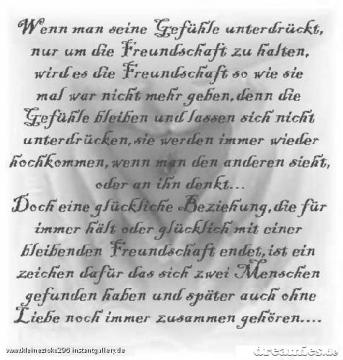 Wenn man seine Gefühle unterdrückt,
nur um die Freundschaft zu halten,
wird es die Freundschaft so wie sie
mal war nicht mehr geben, denn die
Gefühle bleiben und lassen sich nicht
unterdrücken, sie werden immer wieder
hochkommen, wenn man den anderen sieht,
oder an ihn denkt...
Doch eine glückliche Beziehung, die für
immer hält oder glücklich mit einer
bleibenden Freundschaft endet, ist ein
zeichen dafür das sich zwei Menschen
gefunden haben und später auch ohne
Liebe noch immer zusammen gehören....
dreamies.de